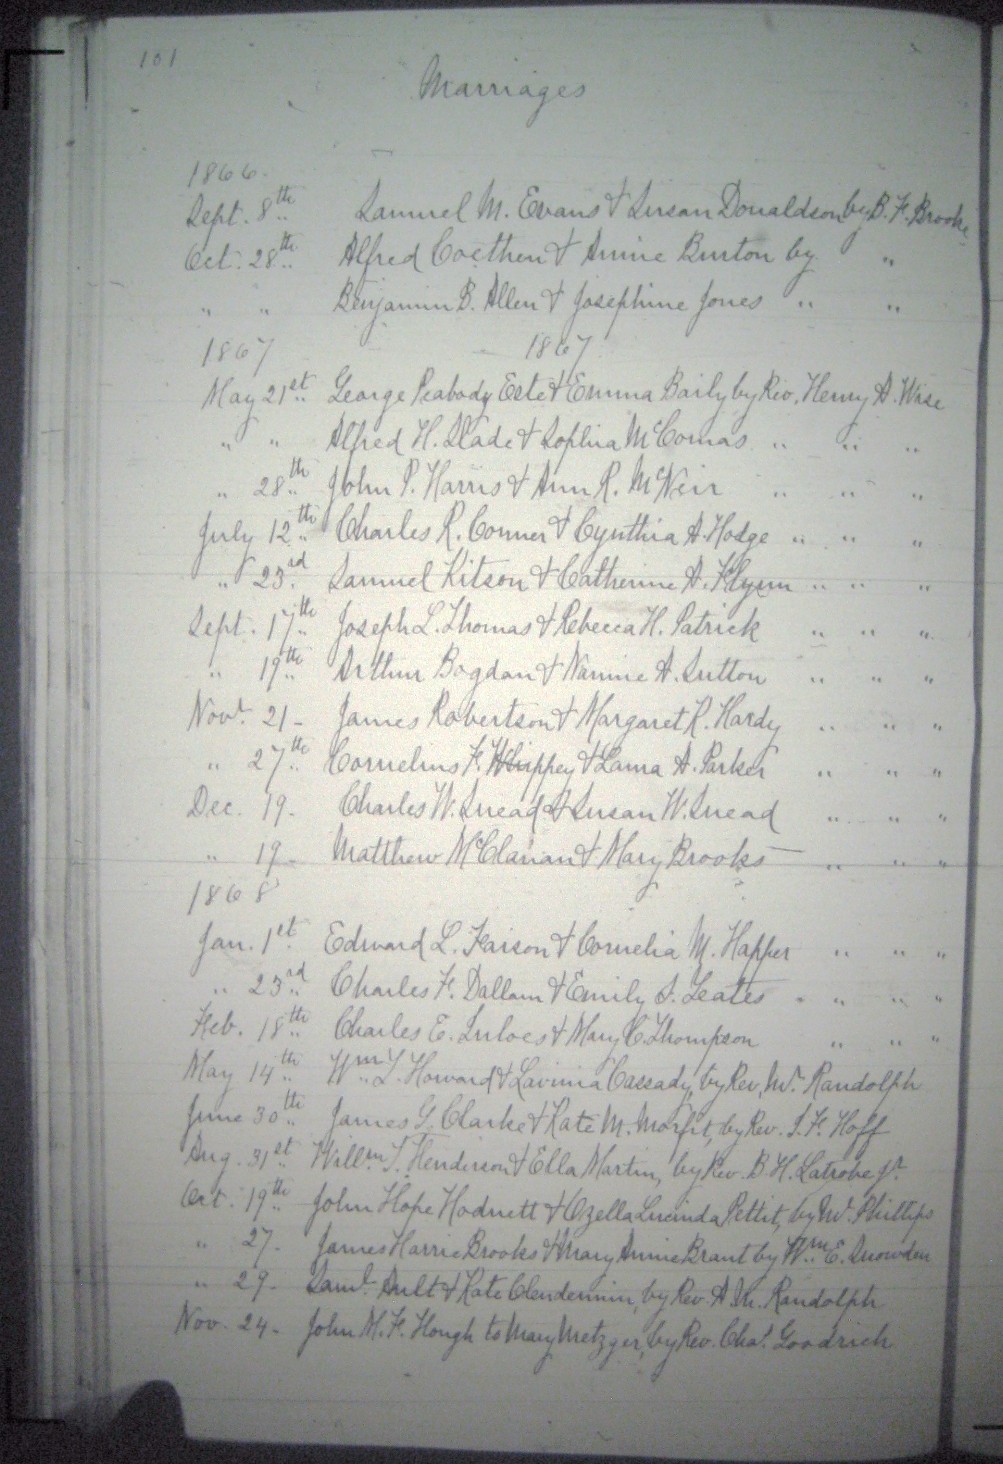 101
Marriages
1866.
Sept. 8th Samuel M. Evans & Susan Donaldson by B. F. Brooke
Oct. 28th Alfred Coethen & Annie Burton by "
" " Benjamin B. Allen & Josephine Jones " "
1867 1867
May 21st George Peabody Este & Emma Baily by Rev. Henry A. Wise
" " Alfred H. Slade & Sophia McComas " " "
" 28th John P. Harris & Ann R. McNeir " " "
July 12th Charles R. Conner & Cynthia A. Hodge " " "
" 23rd Samuel Kitson & Catherine A. Flynn " " "
Sept. 17th Joseph L. Thomas & Rebecca H. Patrick " " "
" 19th Arthur Bogdan & Nannie A. Sutton " " "
Novr. 21 - James Robertson & Margaret R. Hardy " " "
" 27th Cornelius F. Whippey & Laura A. Parker " " "
Dec. 19. Charles W. Snead & Susan W. Snead " " "
" 19 - Matthew McClanan & Mary Brooks - " " "
1868
Jan. 1st Edward L. Faison & Cornelia M. Happer " " "
" 23rd Charles F. Dallam & Emily S. Leates " " " "
Feb. 18th Charles E. Luloes & Mary C. Thompson " " "
May 14th Wm. L. Howard & Lavinia Cassady, by Rev. Mr. Randolph
June 30th James G. Clarke & Kate M. Morfit, by Rev. J. F. Hoff
Aug. 31st Willm. T. Henderson & Ella Martin, by Rev. B. H. Latrobe Jr.
Oct. 19th John Hope Hodnett & Ozella Lucinda Pettit, by Mr. Phillips
" 27. James Harrie Brooks & Mary Annie Brant by Wm. E. Snowden
" 29. Saml. Ault & Kate Clendennin, by Rev. A. M. Randolph
Nov. 24 - John M. F. Hough to Mary Metzger, by Rev. Chas. Goodrich